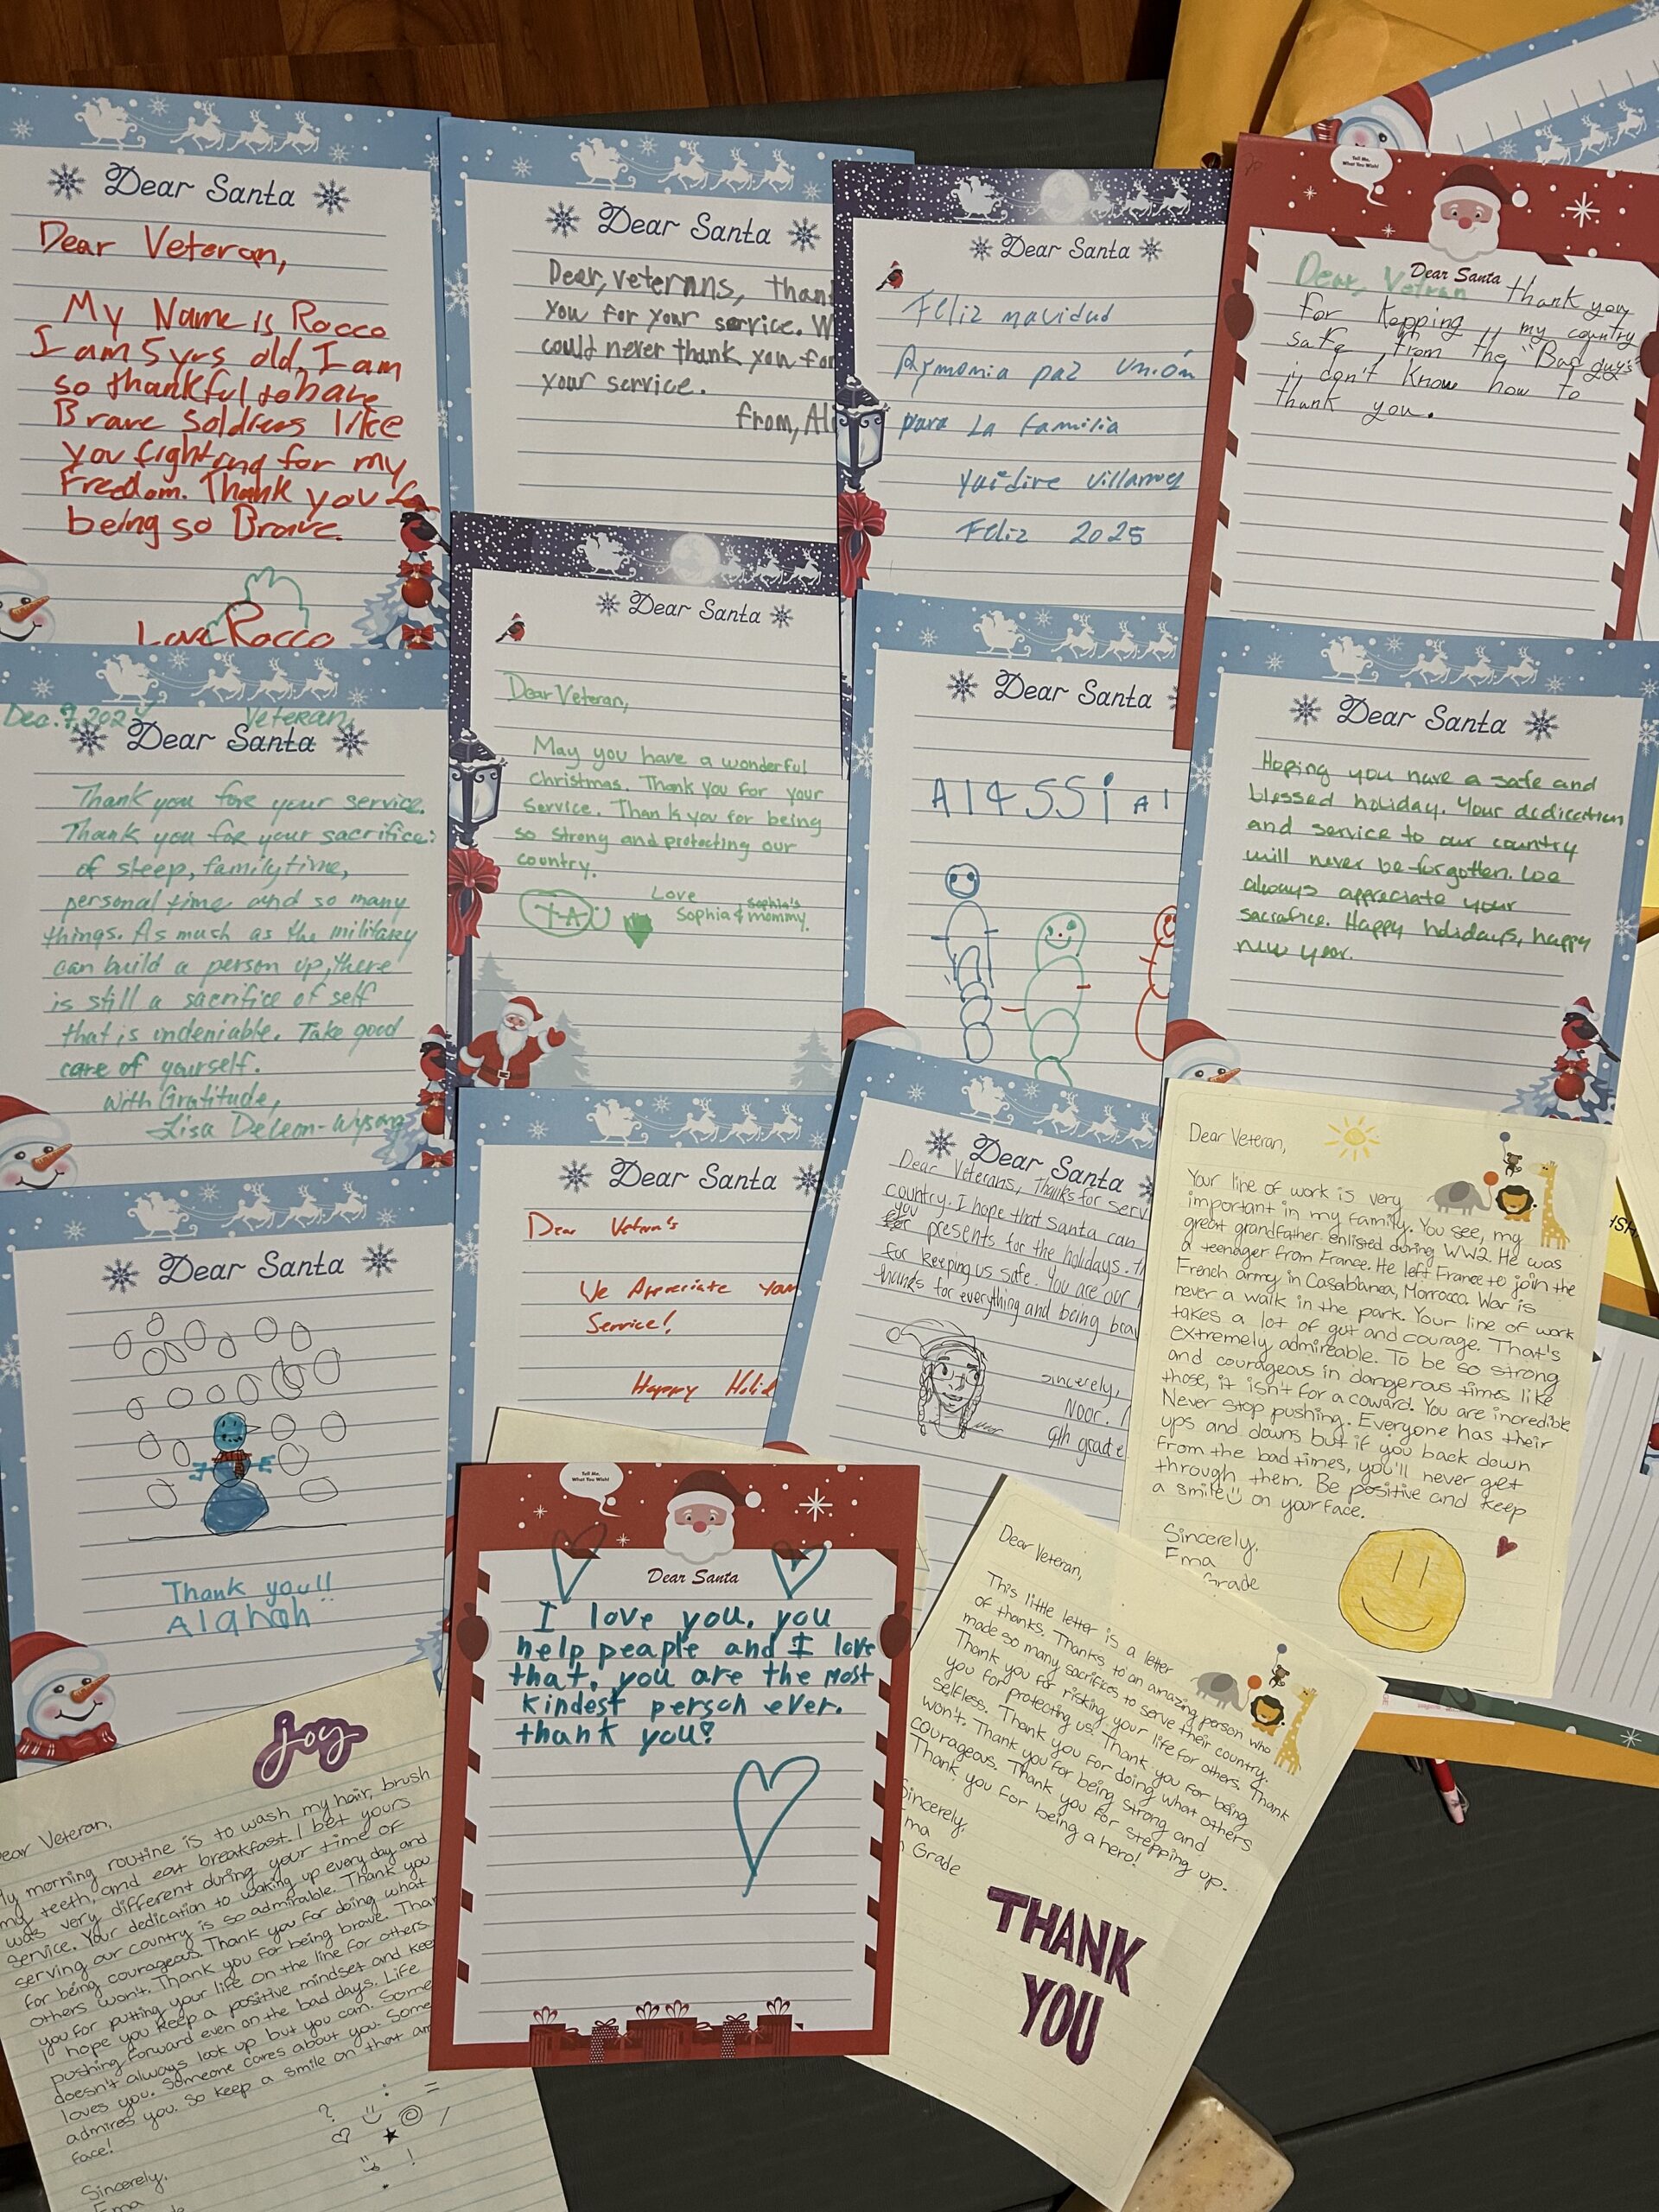 Dear Santa
Dear Veteran,
My Name is Rocco
I am 5 yrs old. I am
so thankful to have
Brave soldiers like
you fighting for my
Freedom. Thank you f
being so Brave.
Love Rocco
Dear Santa
Dear, veterans, than
you for your service. W
could never thank you for
your service.
from, Ali
Dear Santa
Feliz navidad
Armonia paz Unión
para La familia
Yuidire Villarruel
Feliz 2025
Tell Me,
What You Wish!
Dear Santa
Dear, Vetran thank you
for Kepping my country
safe, from the "Bad guys"
i don't know how to
thank you.
Dec. 7, 2024 Veteran,
Dear Santa
Thank you fore your service.
Thank you for your sacrifice:
of sleep, family time,
personal time and so many
things. As much as the military
can build a person up, there
is still a sacrifice of self
that is undeniable. Take good
care of yourself.
With Gratitude,
Lisa DeLeon-Wysong
Dear Santa
Dear Veteran,
May you have a wonderful
Christmas. Thank you for your
Service. Thank you for being
so strong and protecting our
country.
Love
Sophia & Sophia's
mommy.
Dear Santa
A14SSi A1
Dear Santa
Hoping you have a safe and
blessed holiday. Your dedication
and service to our country
will never be forgotten. We
always appreciate your
sacrafice. Happy holidays, happy
new year.
Dear Santa
Thank you!!
Alahah
Dear Santa
Dear Vetran's
We Appreciate your
Service!
Happy Holid
Dear Santa
Dear Veterans, Thanks for serv
country. I hope that Santa can
you
for presents for the holidays. th
for keeping us safe. You are our
thanks for everything and being brav
sincerely,
Noor.
9th grade
Dear Veteran,
Your line of work is very
important in my family. You see, my
great grandfather enlisted during WW2. He was
a teenager from France. He left France to join the
French army in Casablanca, Morrocco. War is
never a walk in the park. Your line of work
takes a lot of gut and courage. That's
extremely admireable. To be so strong
and courageous in dangerous times like
those, it isn't for a coward. You are incredible
Never stop pushing. Everyone has their
ups and downs but if you back down
from the bad times, you'll never get
through them. Be positive and keep
a smile on your face.
Sincerely,
Ema
Grade
Joy
ear Veteran,
My morning routine is to wash my hair, brush
my teeth, and eat breakfast. I bet yours
was very different during your time of
service. Your dedication to waking up every day and
serving our country is so admirable. Thank you
for being courageous. Thank you for doing what
others won't. Thank you for being brave. Than
you for putting your life on the line for others.
I hope you keep a positive mindset and kee
pushing forward even on the bad days. Life
doesn't always look up but you can. Some
loves you. Someone cares about you. Some
admires you. So keep a smile on that am
face!
Sincerely,
Ema
Tell Me,
What You Wish!
Dear Santa
I love you, you
help peaple and I love
that, you are the most
kindest persch ever.
thank you!
Dear Veteran,
This little letter is a letter
of thanks. Thanks to an amazing person who
made so many sacrifices to serve their country.
Thank you for risking your life for others. Thank
you for protecting us. Thank you for being
selfless. Thank you for doing what others
won't. Thank you for being strong and
courageous. Thank you for stepping up.
Thank you for being a hero!
Sincerely,
Ema
Grade
THANK
YOU